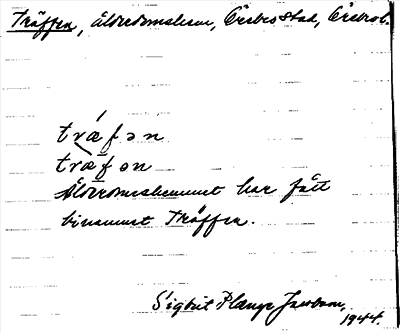 Träffen, Ålderdomshem, Örebro stad, Örebro l.
trǽfən
træfən
Ålderdomshemmet har fått
binamnet Träffen.
Sigbrit Plænge Jacobson,
1944.